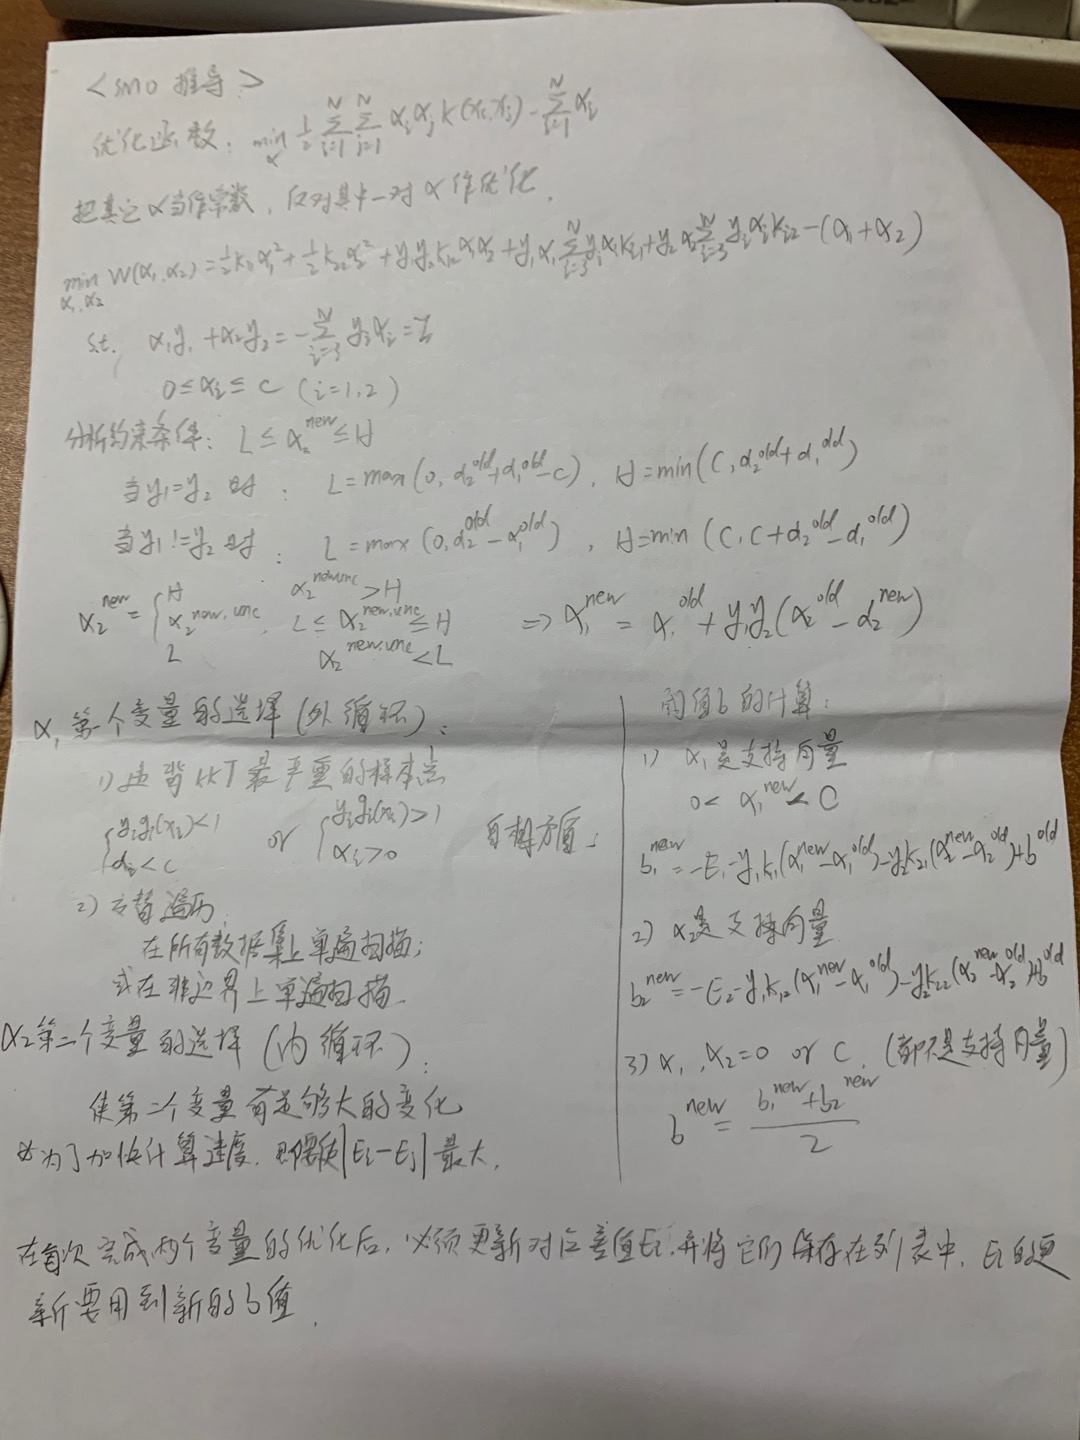 <SMO 推导>
优化函数: min_α 1/2 Σ_{i=1}^N Σ_{j=1}^N α_i α_j K(x_i,x_j) - Σ_{i=1}^N α_i
把其它α当作常数, 仅对其中一对α作优化.
min_{α_1,α_2} W(α_1,α_2) = 1/2 K_11 α_1^2 + 1/2 K_22 α_2^2 + y_1 y_2 K_12 α_1 α_2 + y_1 α_1 Σ_{i=3}^N y_i α_i K_i1 + y_2 α_2 Σ_{i=3}^N y_i α_i K_i2 - (α_1 + α_2)
s.t. α_1 y_1 + α_2 y_2 = - Σ_{i=3}^N y_i α_i = ζ
0 ≤ α_i ≤ C (i=1,2)
分析约束条件: L ≤ α_2^new ≤ H
当y_1=y_2 时: L = max(0, α_2^old + α_1^old - C), H = min(C, α_2^old + α_1^old)
当y_1!=y_2 时: L = max(0, α_2^old - α_1^old), H = min(C, C + α_2^old - α_1^old)
α_2^new = { H α_2^new,unc > H
α_2^new,unc, L ≤ α_2^new,unc ≤ H
L α_2^new,unc < L
=> α_1^new = α_1^old + y_1 y_2 (α_2^old - α_2^new)
α_1 第一个变量的选择 (外循环):
1) 违背KKT最严重的样本点
{ y_i g(x_i) < 1
α_i < C
or { y_i g(x_i) > 1
α_i > 0
自相矛盾;
2) 交替遍历
在所有数据集上单遍扫描;
或在非边界上单遍扫描.
α_2 第二个变量的选择 (内循环):
使第二个变量有足够大的变化
为了加快计算速度, 即要使|E_i - E_j| 最大.
阈值b的计算:
1) α_1 是支持向量
0 < α_1^new < C
b_1^new = -E_1 - y_1 K_11 (α_1^new - α_1^old) - y_2 K_21 (α_2^new - α_2^old) + b^old
2) α_2是支持向量
b_2^new = -E_2 - y_1 K_12 (α_1^new - α_1^old) - y_2 K_22 (α_2^new - α_2^old) + b^old
3) α_1, α_2 = 0 or C. (都不是支持向量)
b^new = (b_1^new + b_2^new) / 2
在首次完成两个变量的优化后, 必须更新对应差值E_i, 并将它们保存在列表中. E_i的更
新要用到新的b值.